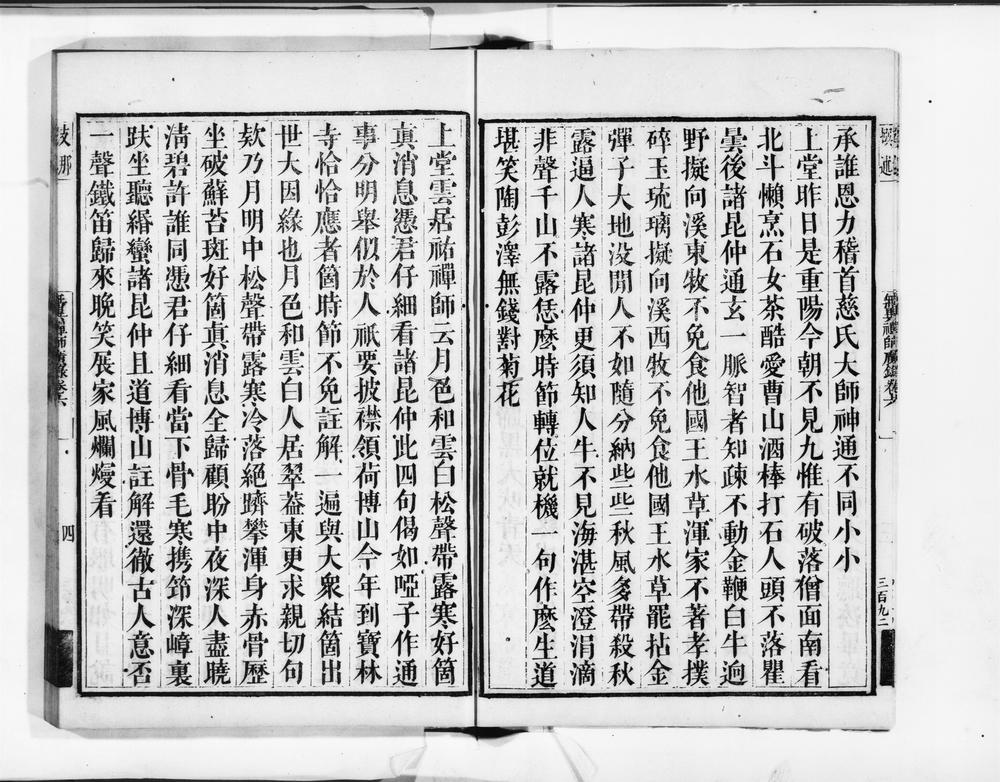 承誰恩力稽首慈氏大師神通不同小小
上堂昨日是重陽今朝不見九惟有破落僧面南看
北斗懶烹石女茶酷愛曹山酒棒打石人頭不落瞿
曇後諸昆仲通玄一脈智者知疎不動金鞭白牛逈
野擬向溪東牧不免食他國王水草渾家不著孝撲
碎玉琉璃擬向溪西牧不免食他國王水草罷拈金
彈子大地没閒人不如隨分納些些秋風多帶殺秋
露逼人寒諸昆仲更須知人牛不見海湛空澄涓滴
非聲千山不露恁麽時節轉位就機一句作麽生道
堪笑陶彭澤無錢對菊花
三百九二
上堂雲居祐禪師云月色和雲白松聲帶露寒好箇
眞消息憑君仔細看諸昆仲此四句偈如啞子作通
事分明舉似於人祇要披襟領荷博山今年到寶林
寺恰恰應者箇時節不免註解一遍與大衆結箇出
世大因緣也月色和雲白人居翠葢東更求親切句
欸乃月明中松聲帶露寒冷落絕躋攀渾身赤骨歷
坐破蘇苔斑好箇眞消息全歸顧盼中夜深人盡曉
淸碧許誰同憑君仔細看當下骨毛寒携筇深嶂裏
趺坐聽緡蠻諸昆仲且道博山註解還徹古人意否
一聲鐵笛歸來晚笑展家風爛熳看
四